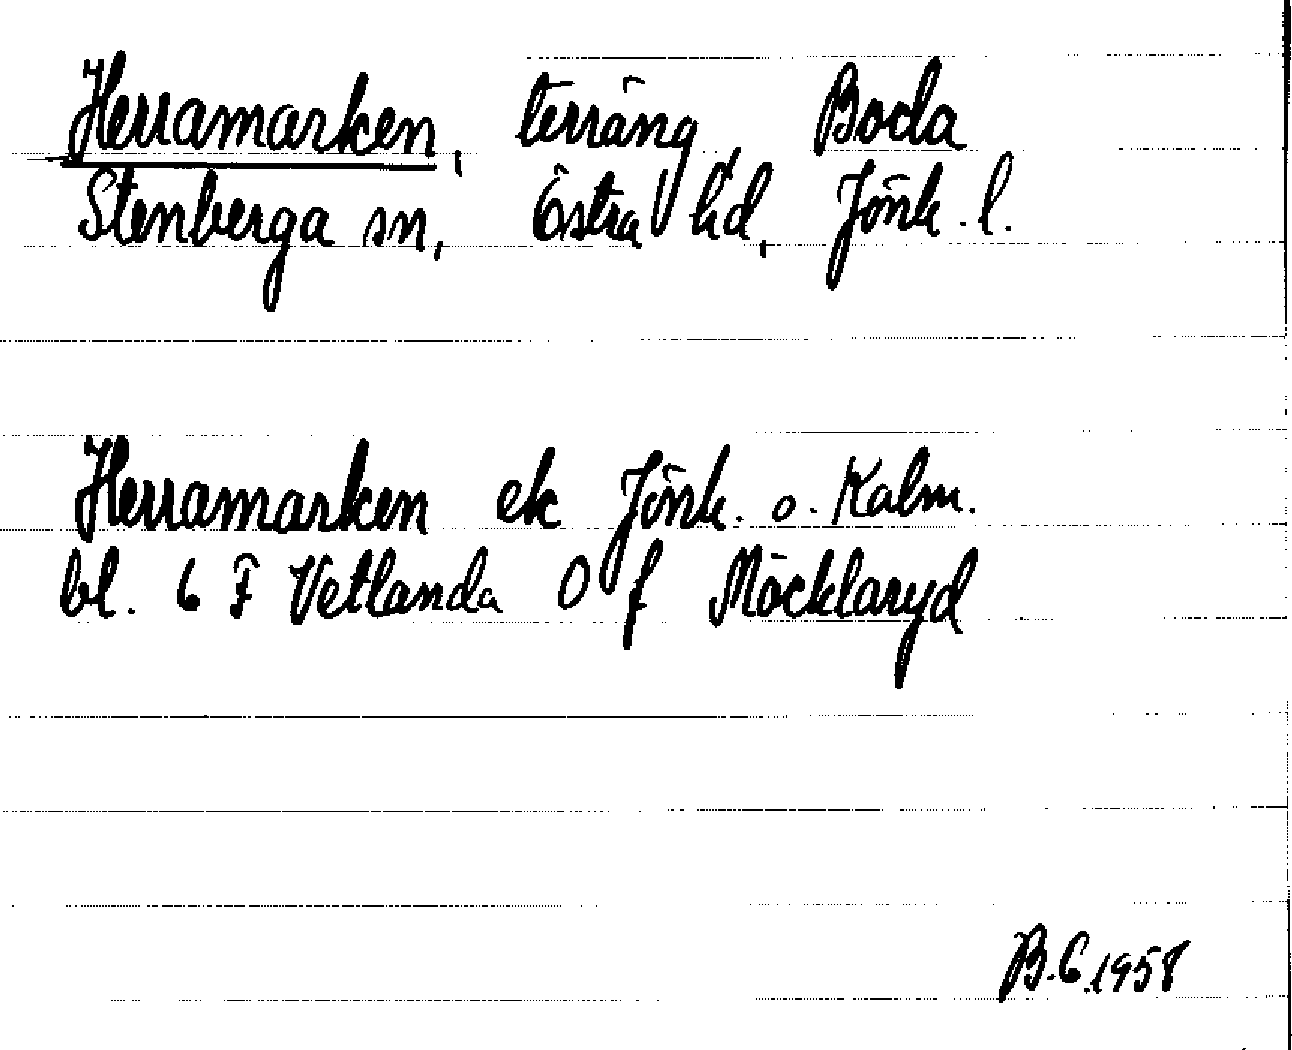 Herramarken, terräng, Boda
Stenberga sn, Östra hd, Jönk. l.
Herramarken ek Jönk. o. Kalm.
bl. 6 F Vetlanda 0 f Möcklaryd
B.G.1958